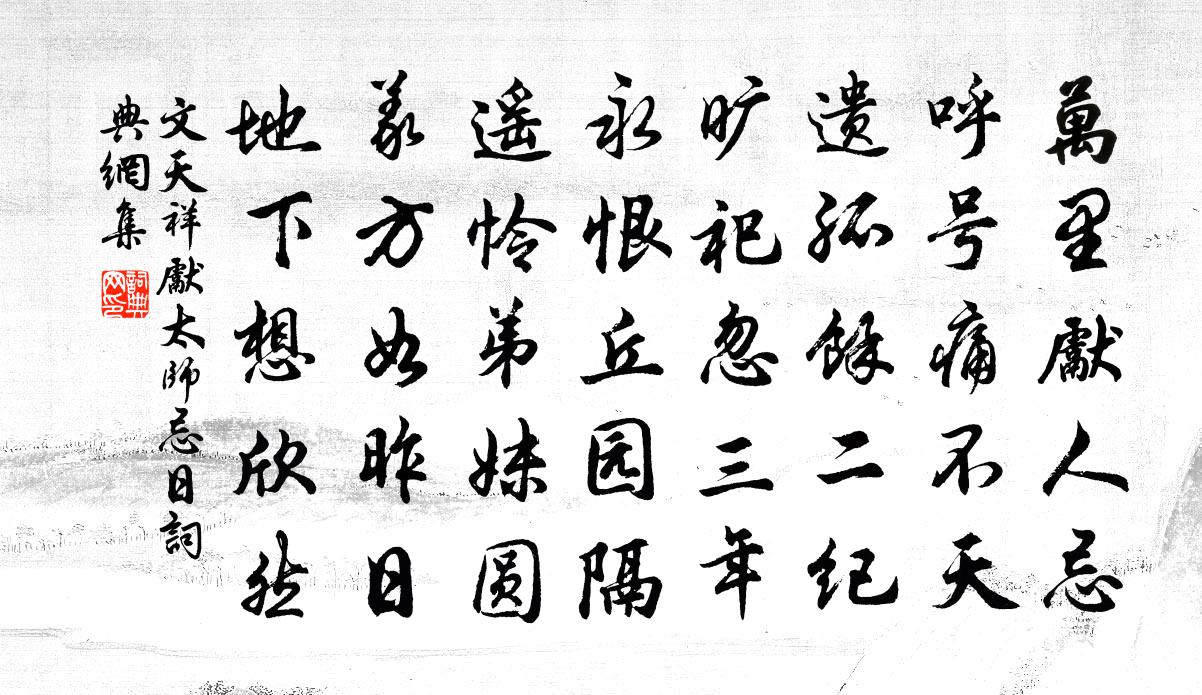 萬里獻人忌
呼号痛不天
遗孤餘二纪
旷祀忽三年
永恨丘园隔
遥怜弟妹圆
義方如昨日
地下想欣然
文天祥獻太師忌日詞
典網集
詞典
网印